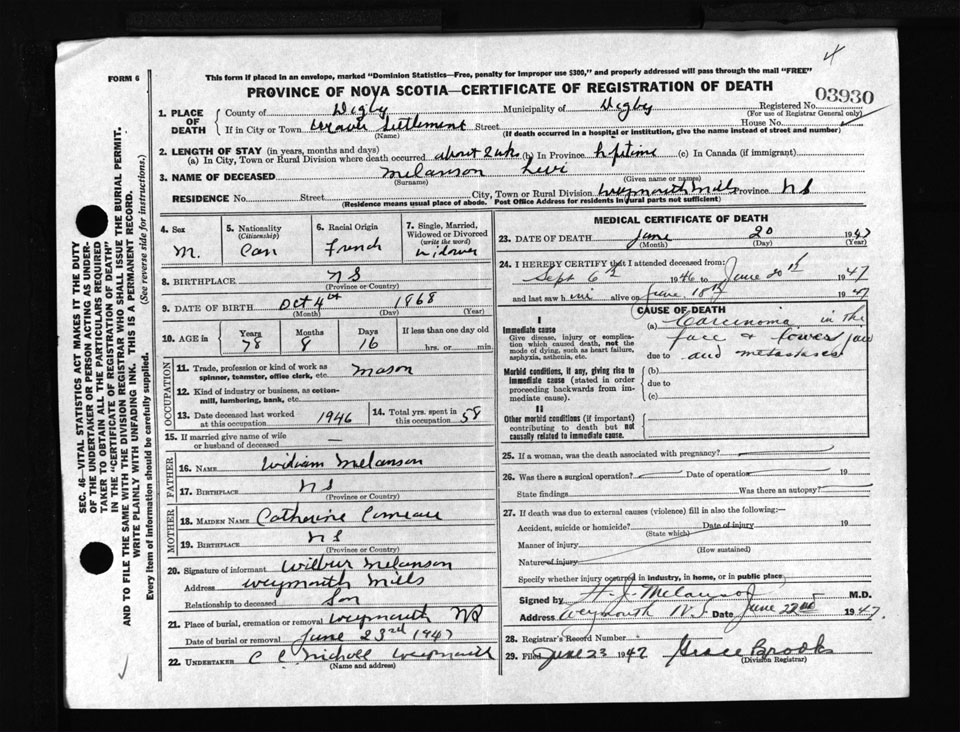 4
FORM 6
This form if placed in an envelope, marked "Dominion Statistics—Free, penalty for improper use $300," and properly addressed will pass through the mail "FREE"
PROVINCE OF NOVA SCOTIA—CERTIFICATE OF REGISTRATION OF DEATH
03930
1. PLACE OF DEATH
County of Digby Municipality of Digby Registered No.
(For use of Registrar General only)
If in City or Town Weaver Settlement Street House No.
(Name) (If death occurred in a hospital or institution, give the name instead of street and number)
2. LENGTH OF STAY (in years, months and days)
(a) In City, Town or Rural Division where death occurred about 2 wks (b) In Province lifetime (c) In Canada (if immigrant)
3. NAME OF DECEASED Melanson Levi
(Surname) (Given name or names)
RESIDENCE No. Street City, Town or Rural Division Weymouth Mills Province NS
(Residence means usual place of abode. Post Office Address for residents in rural parts not sufficient)
4. Sex
M.
5. Nationality
(Citizenship)
Can
6. Racial Origin
French
7. Single, Married, Widowed or Divorced
(write the word)
widower
8. BIRTHPLACE NS
(Province or Country)
9. DATE OF BIRTH Oct 4th 1868
(Month) (Day) (Year)
10. AGE in Years Months Days If less than one day old
78 8 16 hrs. or min.
OCCUPATION
11. Trade, profession or kind of work as spinner, teamster, office clerk, etc. Mason
12. Kind of industry or business, as cotton-mill, lumbering, bank, etc.
13. Date deceased last worked at this occupation 1946
14. Total yrs. spent in this occupation 58
15. If married give name of wife or husband of deceased —
FATHER
16. NAME William Melanson
17. BIRTHPLACE NS
(Province or Country)
MOTHER
18. MAIDEN NAME Catherine Comeau
19. BIRTHPLACE NS
(Province or Country)
20. Signature of informant Wilbur Melanson
Address Weymouth Mills
Relationship to deceased Son
21. Place of burial, cremation or removal Weymouth NS
Date of burial or removal June 23rd 1947
22. UNDERTAKER C Nicholl Weymouth
(Name and address)
MEDICAL CERTIFICATE OF DEATH
23. DATE OF DEATH June 20 1947
(Month) (Day) (Year)
24. I HEREBY CERTIFY that I attended deceased from:
Sept 6th 1946 to June 20th 1947
and last saw him alive on June 18th 1947
CAUSE OF DEATH
I
Immediate cause
Give disease, injury or complication which caused death, not the mode of dying, such as heart failure, asphyxia, asthenia, etc.
(a) Carcinoma in the
face & lower jaw
due to and metastases
Morbid conditions, if any, giving rise to immediate cause (stated in order proceeding backwards from immediate cause).
(b)
due to
(c)
II
Other morbid conditions (if important) contributing to death but not causally related to immediate cause.
25. If a woman, was the death associated with pregnancy?
26. Was there a surgical operation? Date of operation 19
State findings Was there an autopsy?
27. If death was due to external causes (violence) fill in also the following:—
Accident, suicide or homicide? Date of injury 19
(State which)
Manner of injury
(How sustained)
Nature of injury
Specify whether injury occurred in industry, in home, or in public place
Signed by H. J. Melanson M.D.
Address Weymouth N.S. Date June 22nd 1947
28. Registrar's Record Number
29. Filed June 23 1947 Grace Brooks
(Division Registrar)
SEC. 46—VITAL STATISTICS ACT MAKES IT THE DUTY
OF THE UNDERTAKER OR PERSON ACTING AS UNDER-
TAKER TO OBTAIN ALL THE PARTICULARS REQUIRED
IN THE "CERTIFICATE OF REGISTRATION OF DEATH"
AND TO FILE THE SAME WITH THE DIVISION REGISTRAR WHO SHALL ISSUE THE BURIAL PERMIT.
WRITE PLAINLY WITH UNFADING INK. THIS IS A PERMANENT RECORD.
Every item of information should be carefully supplied. (See reverse side for instructions.)